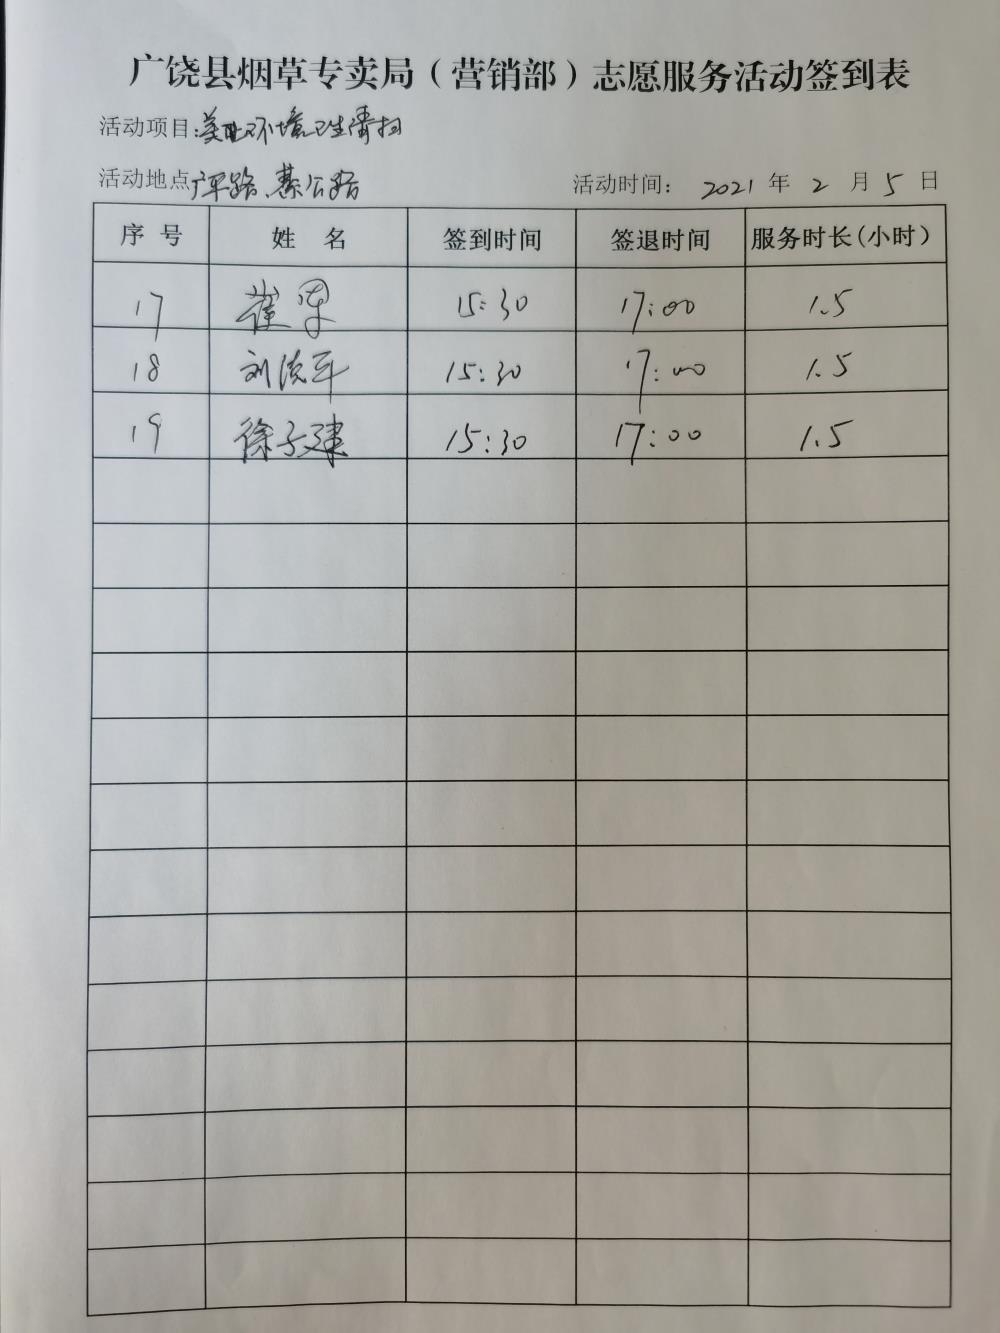 广饶县烟草专卖局（营销部）志愿服务活动签到表
活动项目：环境卫生清扫
活动地点 广平路、綦公路
活动时间： 2021 年 2 月 5 日
序 号 姓 名 签到时间 签退时间 服务时长(小时）
17 崔 15:30 17:00 1.5
18 刘 军 15:30 17:00 1.5
19 徐子建 15:30 17:00 1.5